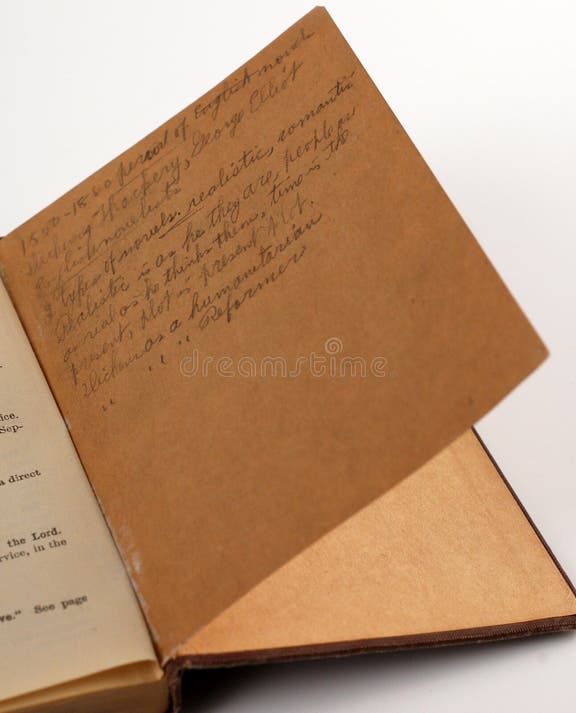 1500-1860 period of English novel
Dickens, Thackery, George Elliot
English novelists
types of novels. realistic, romantic
Realistic is as he they are, people as
as real as he thinks them, time is the
present, plot is present plot.
Dickens as a humanitarian
" " " Reformer
ice.
Sep-
a direct
the Lord.
rvice, in the
ve." See page
dreamstime